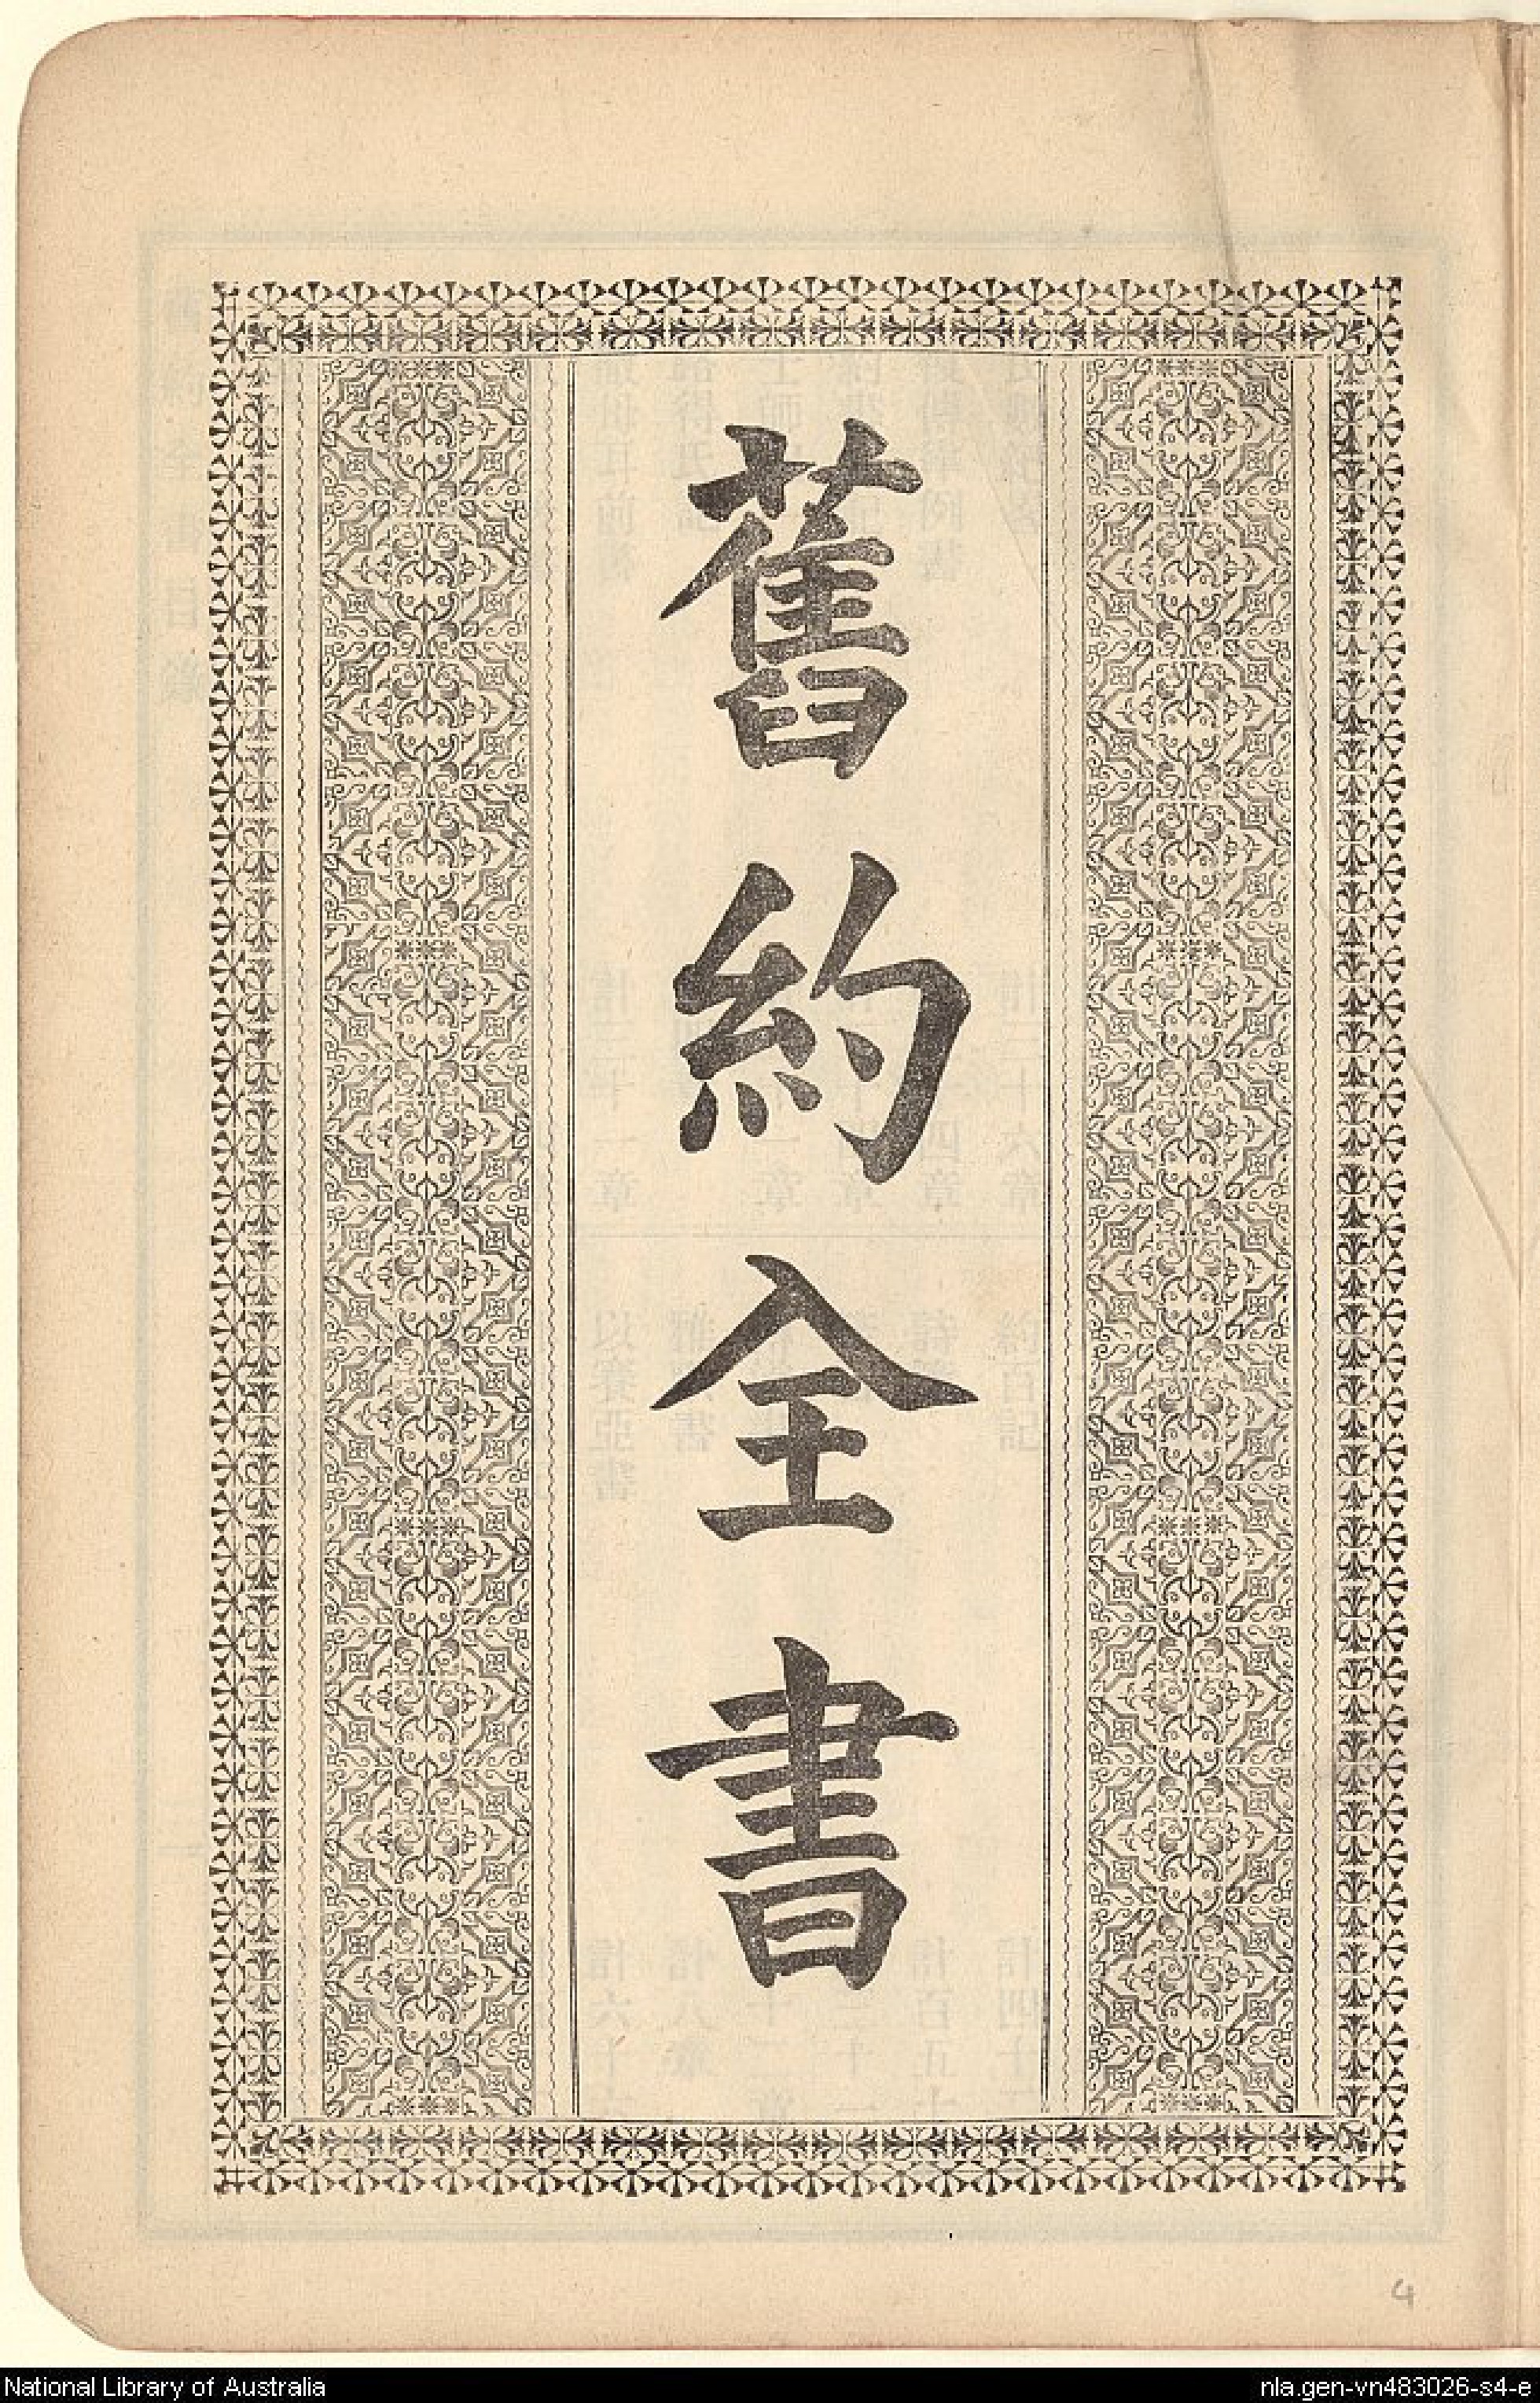 舊約全書
4
National Library of Australia
nla.gen-vn483026-s4-e